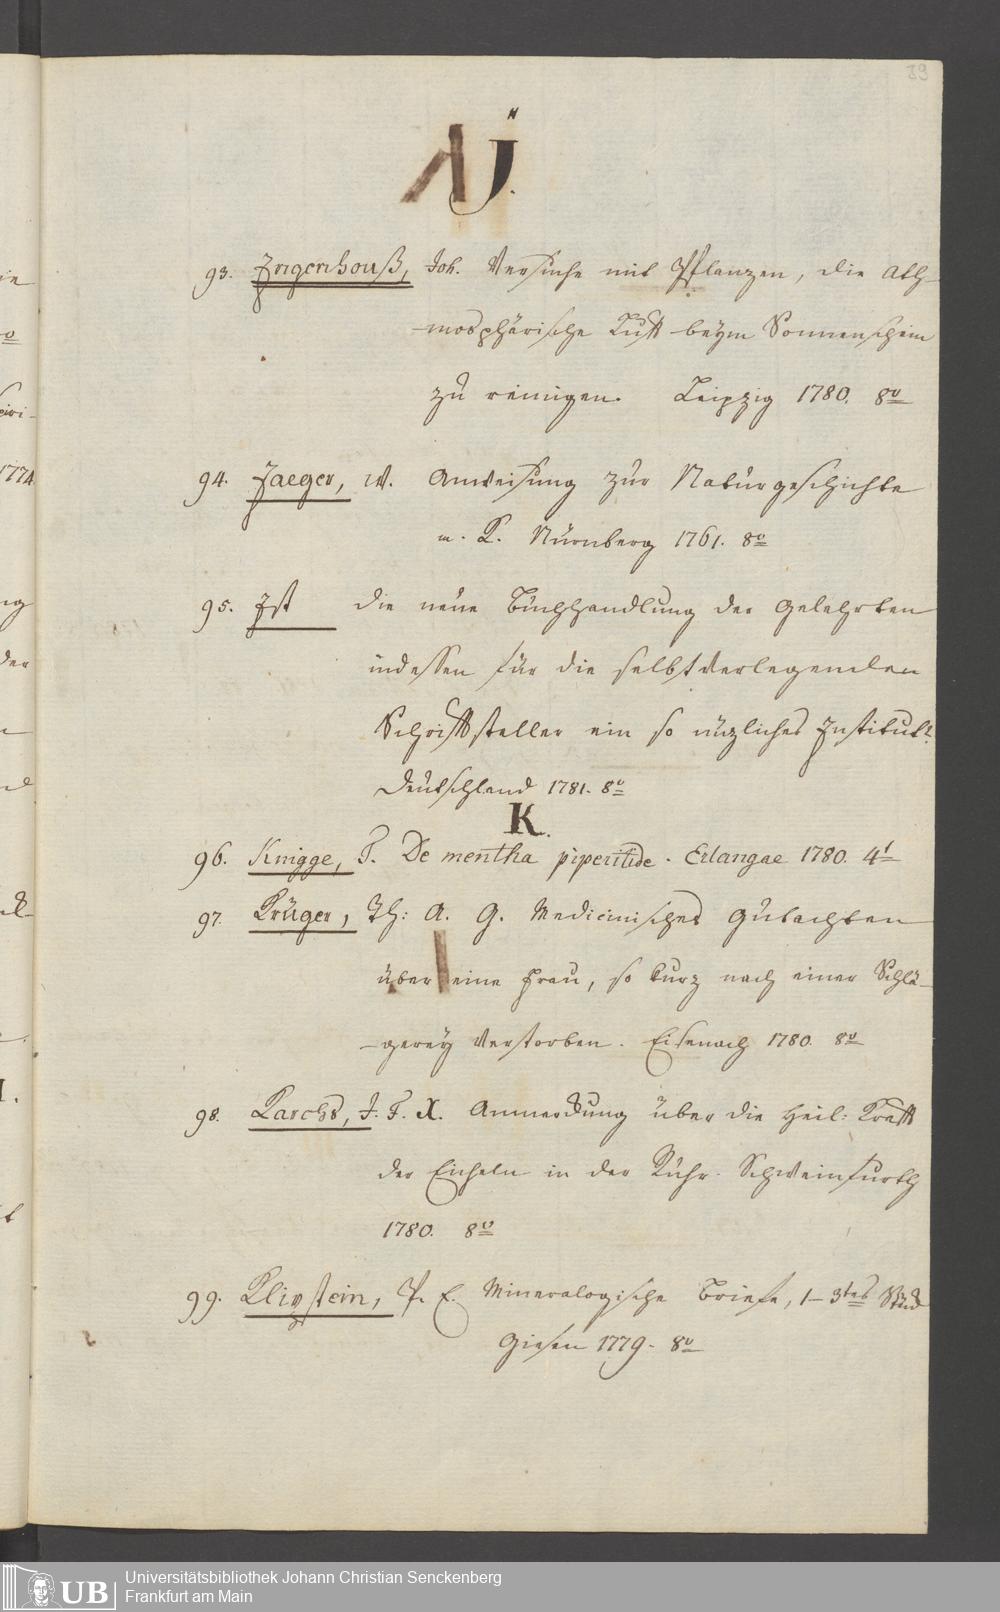 89
J.
93. Ingenhouß, Joh. Versuche mit Pflanzen, die ath-
-mosphärische Luft beÿm Sonnenschein
zu reinigen. Leipzig 1780. 8º
94. Jaeger, W. Anweisung zur Naturgeschichte
m. K. Nürnberg 1761. 8º
95. Ist die neue Buchhandlung der Gelehrten
indessen für die selbstverlegenden
Schriftsteller ein so nüzliches Institut?
Deutschland 1781. 8º
K.
96. Knigge, T. De mentha piperitide. Erlangae 1780. 4t
97. Krüger, Th: A. G. Medicinisches Gutachten
über eine Frau, so kurz nach einer Schlä-
-gereÿ verstorben. Eisenach 1780. 8º
98. Karchs, J. T. X. Anmerckung über die Heil: Krafft
der Eicheln in der Ruhr. Schweinfurth
1780. 8º
99. Klipstein, P. E. Mineralogische Briefe, 1-3tes Stück
Giesen 1779. 8º
UB Universitätsbibliothek Johann Christian Senckenberg
Frankfurt am Main